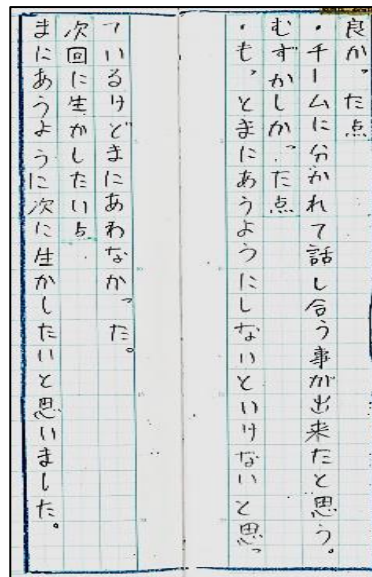 良かった点
・チームに分かれて話し合う事が出来たと思う。
むずかしかった点
・もっとまにあうようにしないといけないと思っ
ているけどまにあわなかった。
次回に生かしたい点
まにあうように次に生かしたいと思いました。